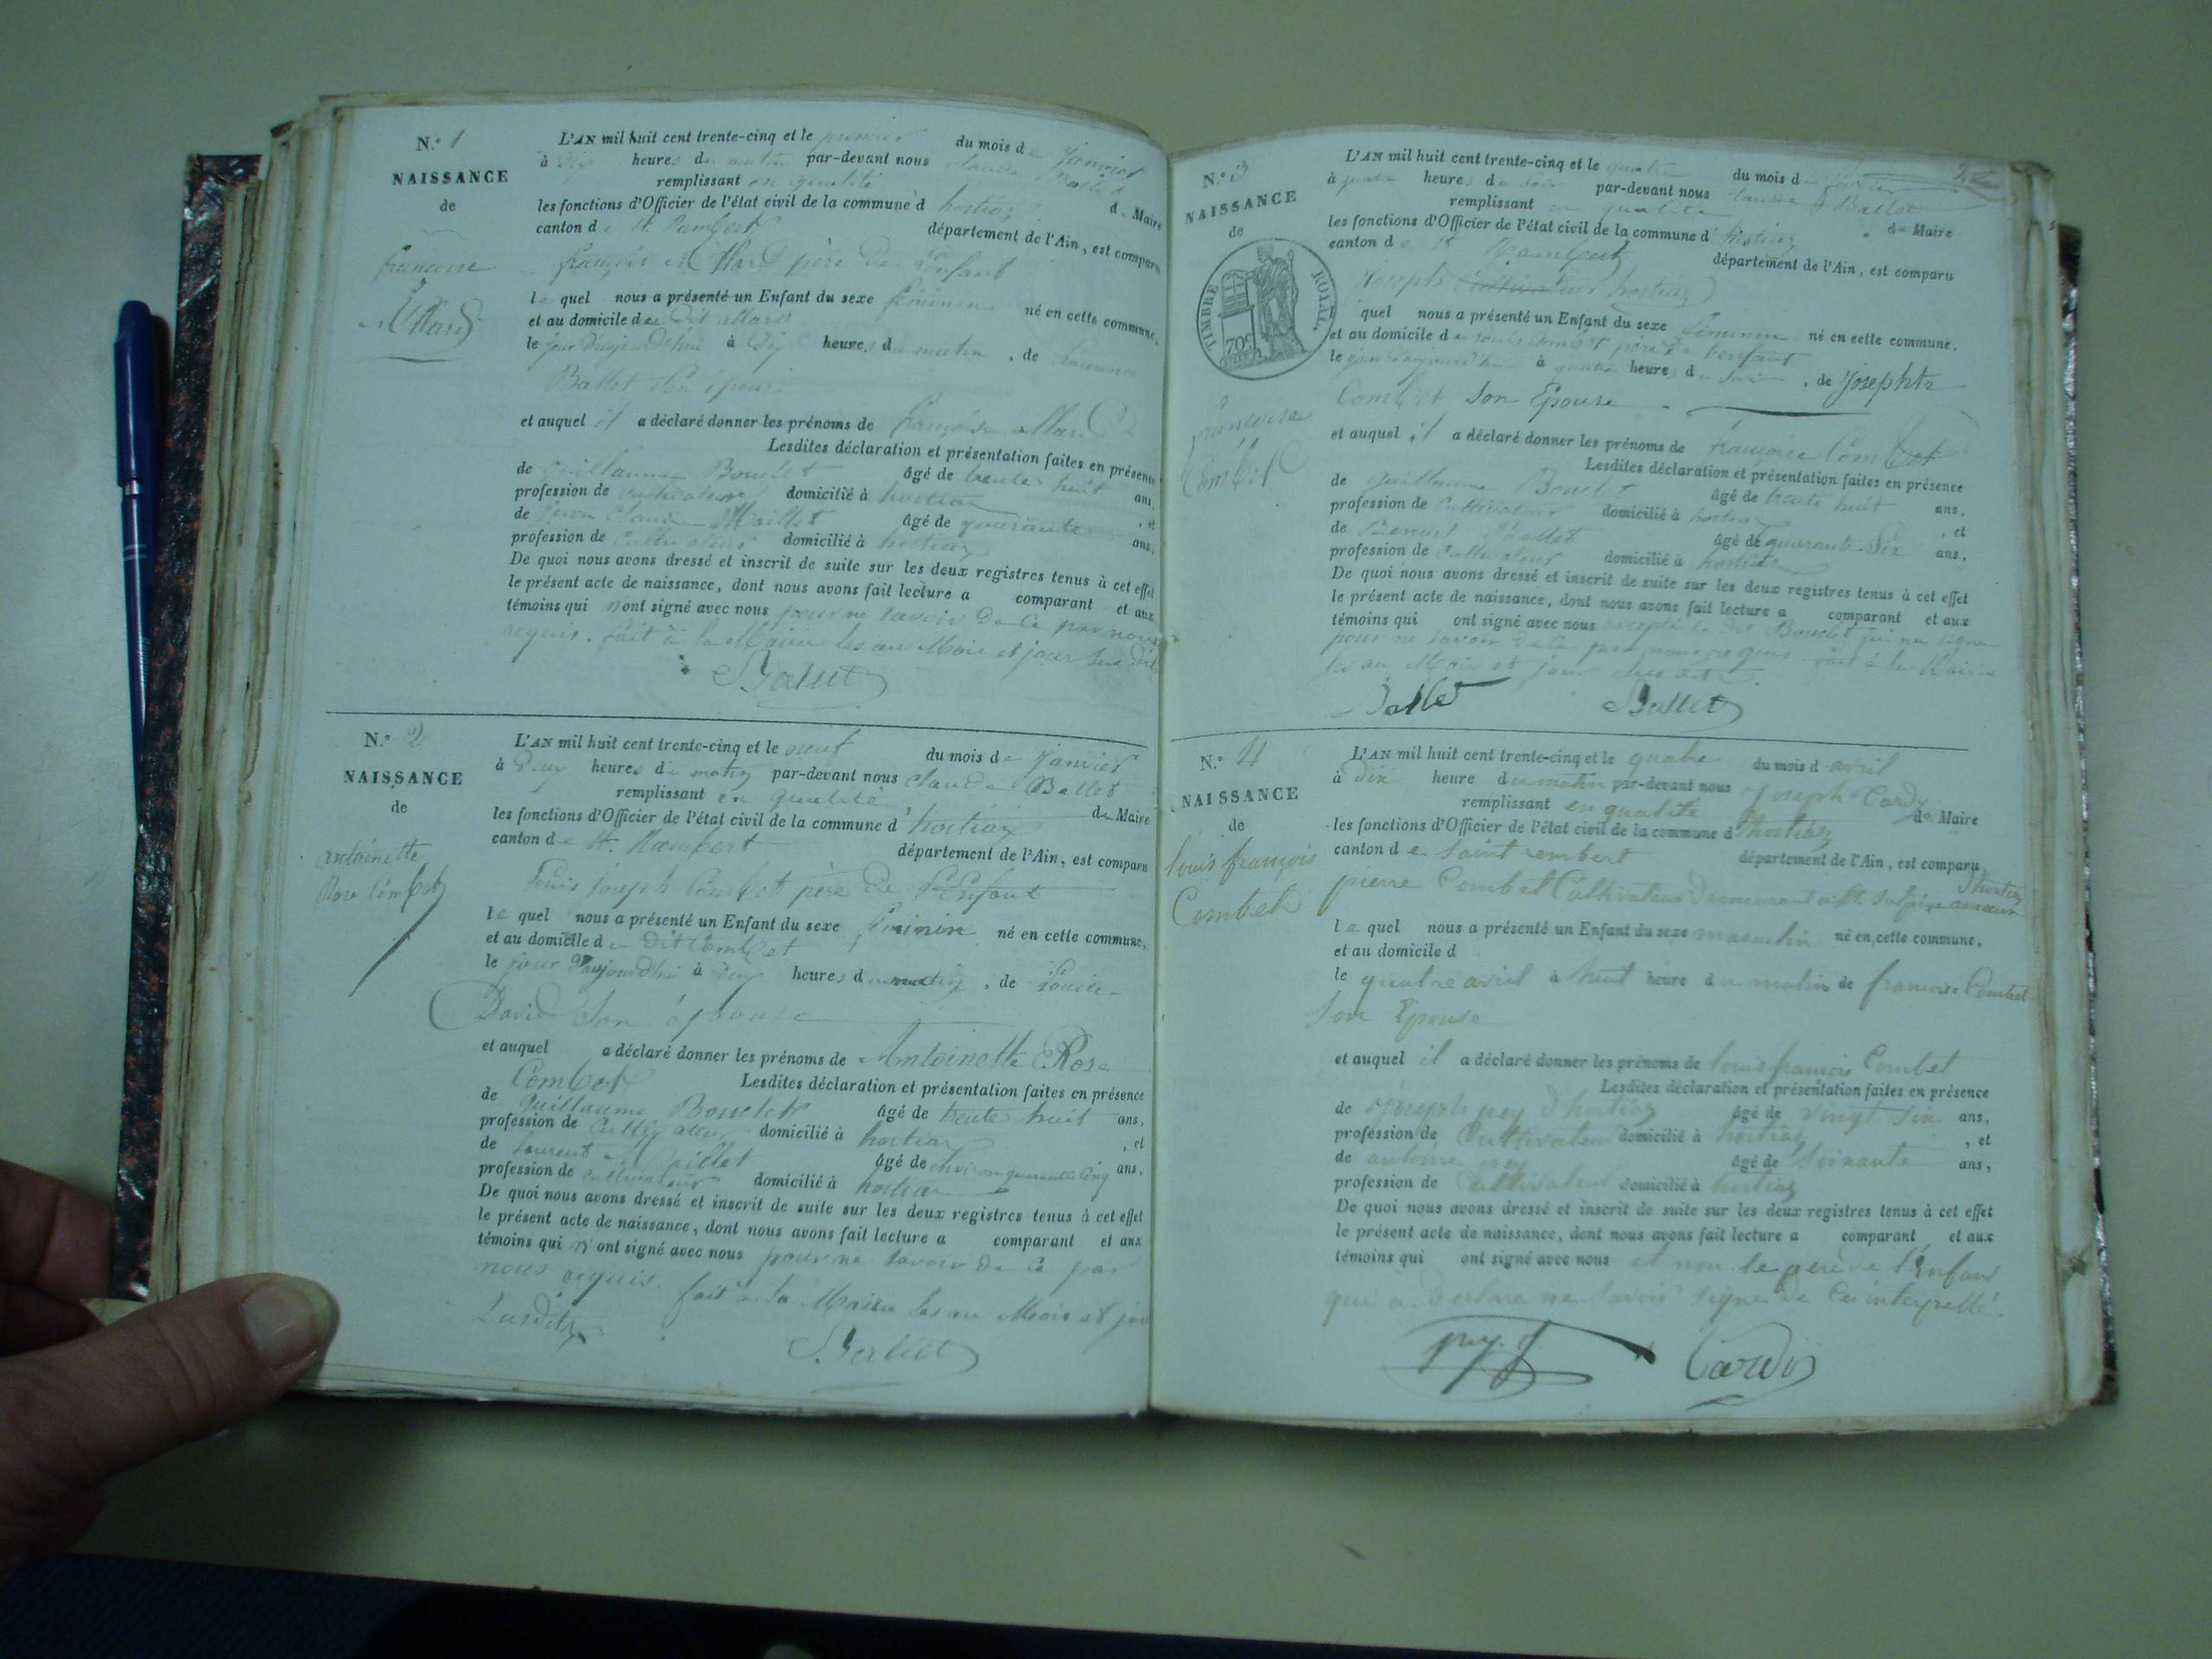 N.o 1
NAISSANCE
de
francoise
Allard
L'AN mil huit cent trente-cinq et le premier du mois de janvier
à dix heures du matin par-devant nous Claude Ballet
remplissant en qualité de Maire
les fonctions d'Officier de l'état civil de la commune d hostiaz
canton de St. Rambert département de l'Ain, est comparu
françois Allard père de L'enfant
lequel nous a présenté un Enfant du sexe féminin né en cette commune,
et au domicile du dit allard
le jour d'aujourd'hui à dix heures du matin, de
Ballet son épouse
et auquel il a déclaré donner les prénoms de françoise allard
Lesdites déclaration et présentation faites en présence
de Guillaume Bouclet âgé de trente huit ans,
profession de cultivateur domicilié à hostiaz, et
de Jean Claude Maillet âgé de quarante ans,
profession de cultivateur domicilié à hostiaz
De quoi nous avons dressé et inscrit de suite sur les deux registres tenus à cet effet
le présent acte de naissance, dont nous avons fait lecture a comparant et aux
témoins qui n'ont signé avec nous pour ne savoir de ce par nous
requis. fait à la Mairie les an Mois et jour sus dit
Ballet
N.o 2
NAISSANCE
de
antoinette
Rose Combet
L'AN mil huit cent trente-cinq et le neuf du mois de janvier
à deux heures du matin par-devant nous Claude Ballet
remplissant en qualité de Maire
les fonctions d'Officier de l'état civil de la commune d'hostiaz
canton de St. Rambert département de l'Ain, est comparu
Louis joseph Combet père de L'Enfant
lequel nous a présenté un Enfant du sexe féminin né en cette commune,
et au domicile du dit Combet
le jour d'aujourd'hui à deux heures du matin, de Louise
David son épouse
et auquel a déclaré donner les prénoms de Antoinette Rose
Combet Lesdites déclaration et présentation faites en présence
de Guillaume Bouclet âgé de trente huit ans,
profession de Cultivateur domicilié à hostiaz, et
de Laurent Maillet âgé de environ quarante cinq ans,
profession de cultivateur domicilié à hostiaz
De quoi nous avons dressé et inscrit de suite sur les deux registres tenus à cet effet
le présent acte de naissance, dont nous avons fait lecture a comparant et aux
témoins qui n'ont signé avec nous pour ne savoir de ce par
nous requis. fait à la Mairie les an Mois et jou
susdits
Ballet
N.o 3
NAISSANCE
de
TIMBRE ROYAL
70c
francoise
Combet
L'AN mil huit cent trente-cinq et le quatre du mois de février
à quatre heures du soir par-devant nous Claude Ballet
remplissant en qualité de Maire
les fonctions d'Officier de l'état civil de la commune d'hostiaz
canton de St Rambert département de l'Ain, est comparu
Joseph hostiaz
quel nous a présenté un Enfant du sexe féminin né en cette commune,
et au domicile de Louis Combet père de l'enfant
le jour d'aujourd'hui à quatre heures du soir, de Josephte
Combet son Epouse
et auquel il a déclaré donner les prénoms de françoise Combet
Lesdites déclaration et présentation faites en présence
de Guillaume Bouclet âgé de trente huit ans,
profession de Cultivateur domicilié à hostiaz, et
de Benoit Ballet âgé de quarante six ans,
profession de Cultivateur domicilié à hostiaz
De quoi nous avons dressé et inscrit de suite sur les deux registres tenus à cet effet
le présent acte de naissance, dont nous avons fait lecture a comparant et aux
témoins qui ont signé avec nous excepté le dit Bouclet qui ne signe
pour ne savoir de ce par nous requis fait à la Mairie
les an Mois et jour
Ballet Ballet
N.o 4
NAISSANCE
de
louis françois
Combet
L'AN mil huit cent trente-cinq et le quatre du mois d avril
à dix heure du matin par-devant nous joseph Cardy
remplissant en qualité de Maire
les fonctions d'Officier de l'état civil de la commune d'hostiaz
canton de Saint rembert département de l'Ain, est comparu
pierre Combet Cultivateur demeurant
lequel nous a présenté un Enfant du sexe masculin né en cette commune,
et au domicile d
le quatre avril à huit heure du matin de francoise Combet
Son Epouse
et auquel il a déclaré donner les prénoms de louis françois Combet
Lesdites déclaration et présentation faites en présence
de joseph pey d'hostiaz âgé de vingt six ans,
profession de Cultivateur domicilié à hostiaz, et
de antoine pey âgé de soixante ans,
profession de Cultivateur domicilié à hostiaz
De quoi nous avons dressé et inscrit de suite sur les deux registres tenus à cet effet
le présent acte de naissance, dont nous avons fait lecture a comparant et aux
témoins qui ont signé avec nous et non le pere de l'Enfant
qui a declare ne savoir signe de ce interpellé
pey. j Cardy